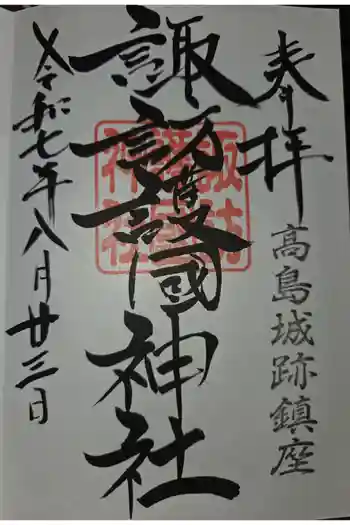 奉拝
高島城跡鎮座
諏訪護國神社
〆令和七年八月廿三日
諏訪護國神社